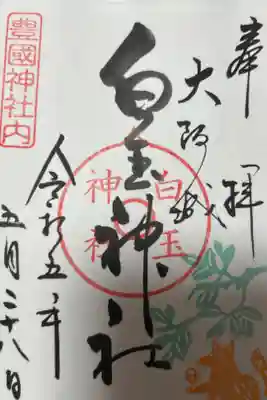 奉拝
大阪城
白玉神社
白玉
神社
豊國神社内
令和五年
五月二十八日